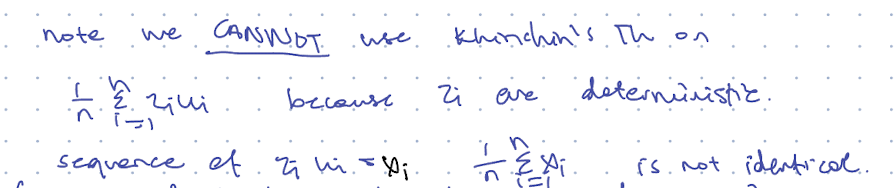 note we CANNOT use Khinchin's Th on
1/n Σ_{i=1}^{n} z_i u_i because z_i are deterministic.
sequence of z_i u_i = x_i 1/n Σ_{i=1}^{n} x_i is not identical.